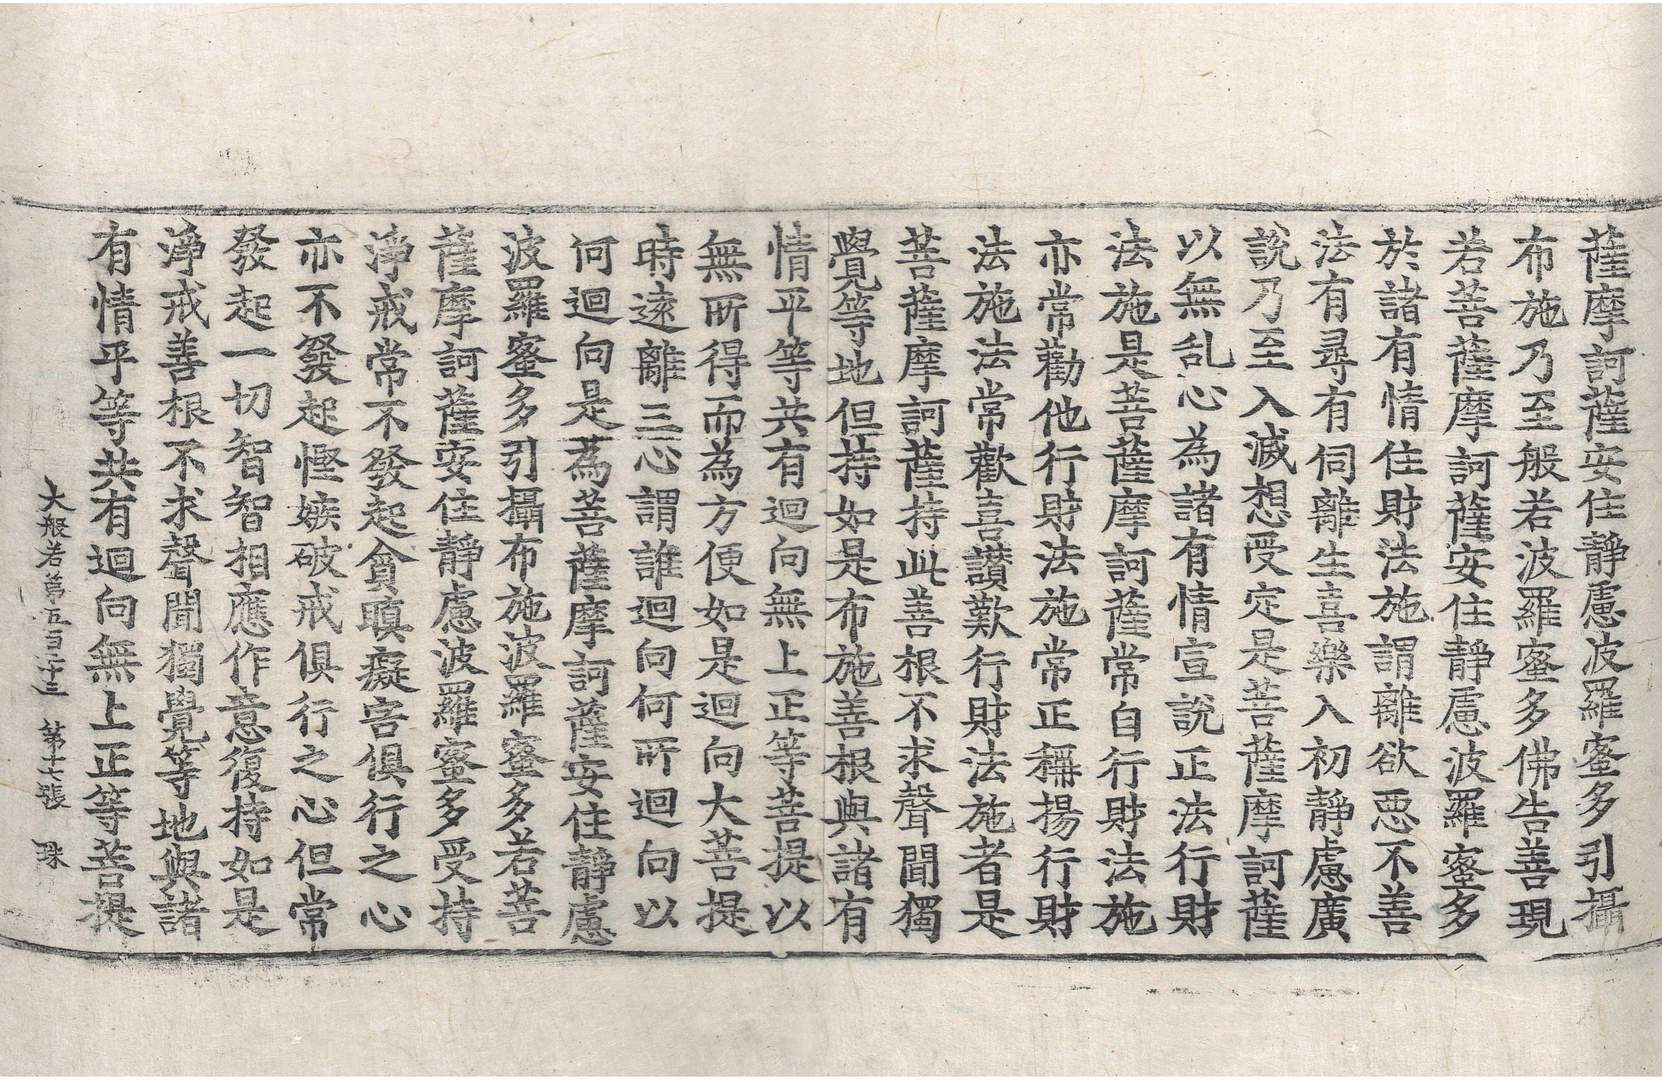 薩摩訶薩安住靜慮波羅蜜多引攝
布施乃至般若波羅蜜多佛告善現
若菩薩摩訶薩安住靜慮波羅蜜多
於諸有情住財法施謂離欲惡不善
法有尋有伺離生喜樂入初靜慮廣
說乃至入滅想受定是菩薩摩訶薩
以無乱心為諸有情宣說正法行財
法施是菩薩摩訶薩常自行財法施
亦常勸他行財法施常正稱揚行財
法施法常歡喜讃歎行財法施者是
菩薩摩訶薩持此善根不求聲聞獨
覺等地但持如是布施善根與諸有
情平等共有迴向無上正等菩提以
無所得而為方便如是迴向大菩提
時遠離三心謂誰迴向何所迴向以
何迴向是為菩薩摩訶薩安住靜慮
波羅蜜多引攝布施波羅蜜多若菩
薩摩訶薩安住靜慮波羅蜜多受持
淨戒常不發起貪瞋癡害俱行之心
亦不發起慳嫉破戒俱行之心但常
發起一切智智相應作意復持如是
淨戒善根不求聲聞獨覺等地與諸
有情平等共有迴向無上正等菩提
大般若第五百二十三 第十七張 珠